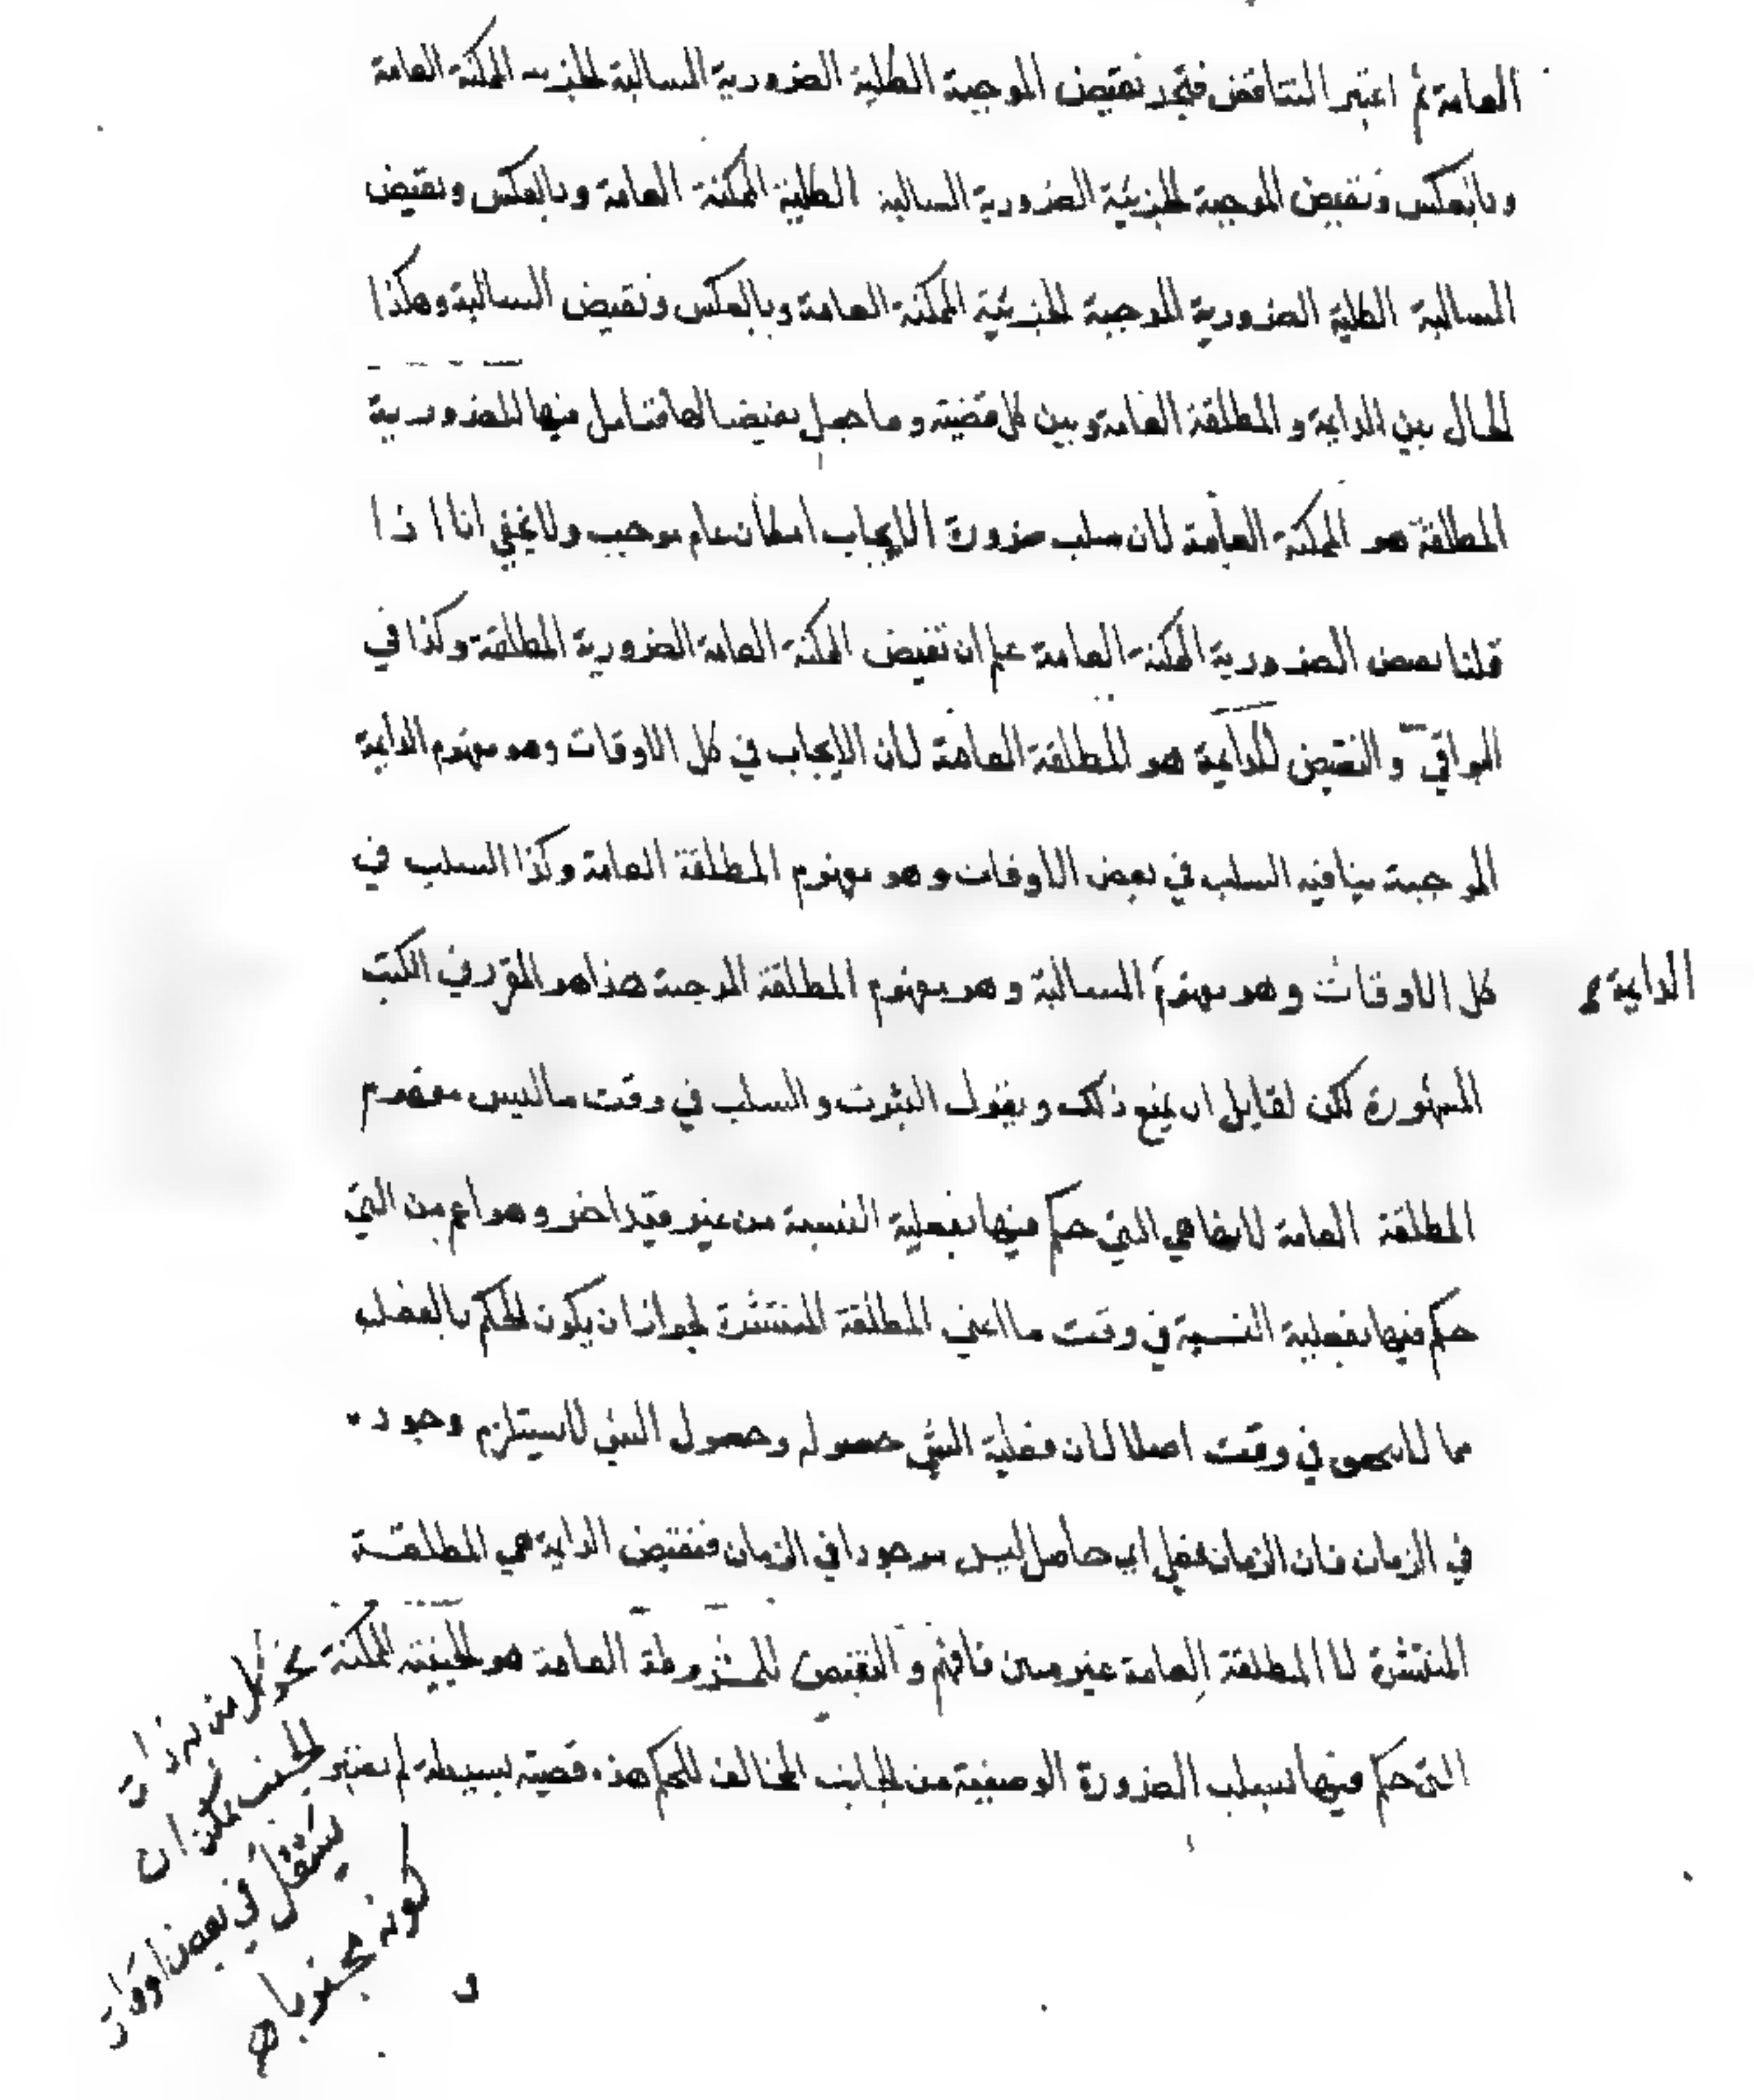 العامة ثم اعتبر التناقض فيجد نقيض الموجبة الكلية الضرورية السالبة الجزئية الممكنة العامة
وبالعكس ونقيض الموجبة الجزئية الضرورية السالبة الكلية الممكنة العامة وبالعكس ونقيض
السالبة الكلية الضرورية الموجبة الجزئية الممكنة العامة وبالعكس ونقيض السالبة وهكذا
الحال بين الدايمة والمطلقة العامة وبين كل قضية وما جعل نقيضا لها فتامل فيها للضرورية
المطلقة هو الممكنة العامة لان سلب ضرورة الايجاب امكان عام موجب ولا يخفى انا اذا
قلنا نقيض الضرورية الممكنة العامة علم ان نقيض الممكنة العامة الضرورية المطلقة وكذا في
البواقي والنقيض للدايمة هو المطلقة العامة لان الايجاب في كل الاوقات وهو مفهوم الدايمة
الموجبة ينافيه السلب في بعض الاوقات وهو مفهوم المطلقة العامة وكذا السلب في
كل الاوقات وهو مفهوم السالبة وهو مفهوم المطلقة الموجبة هذا هو المقرر في الكتب
الدايمة
المشهورة لكن لقايل ان يمنع ذلك ويقول الثبوت والسلب في وقت ما ليس مفهوم
المطلقة العامة لانها هي التي حكم فيها بفعلية النسبة من غير قيد اخر وهو اعم من التي
حكم فيها بفعلية النسبة في وقت ما اعني المطلقة المنتشرة لجواز ان يكون الحكم بالفعل
مما لا في وقت اصلا لان فعلية الشي حصوله وحصول الشي لا يستلزم وجوده
في الزمان فان الزمان فعلي اي حاصل ليس موجودا في الزمان فنقيض الدايمة هي المطلقة
المنتشرة لا المطلقة العامة غير فافهم والنقيض للمشروطة العامة هو الحينية الممكنة
التي حكم فيها بسلب الضرورة الوصفية من الجانب المخالف للحكم هذه قضية بسيطة لم يعتبر
نحو كل من به ذات
الجنب يمكن ان
في بعض اوقات
كونه مجنوبا